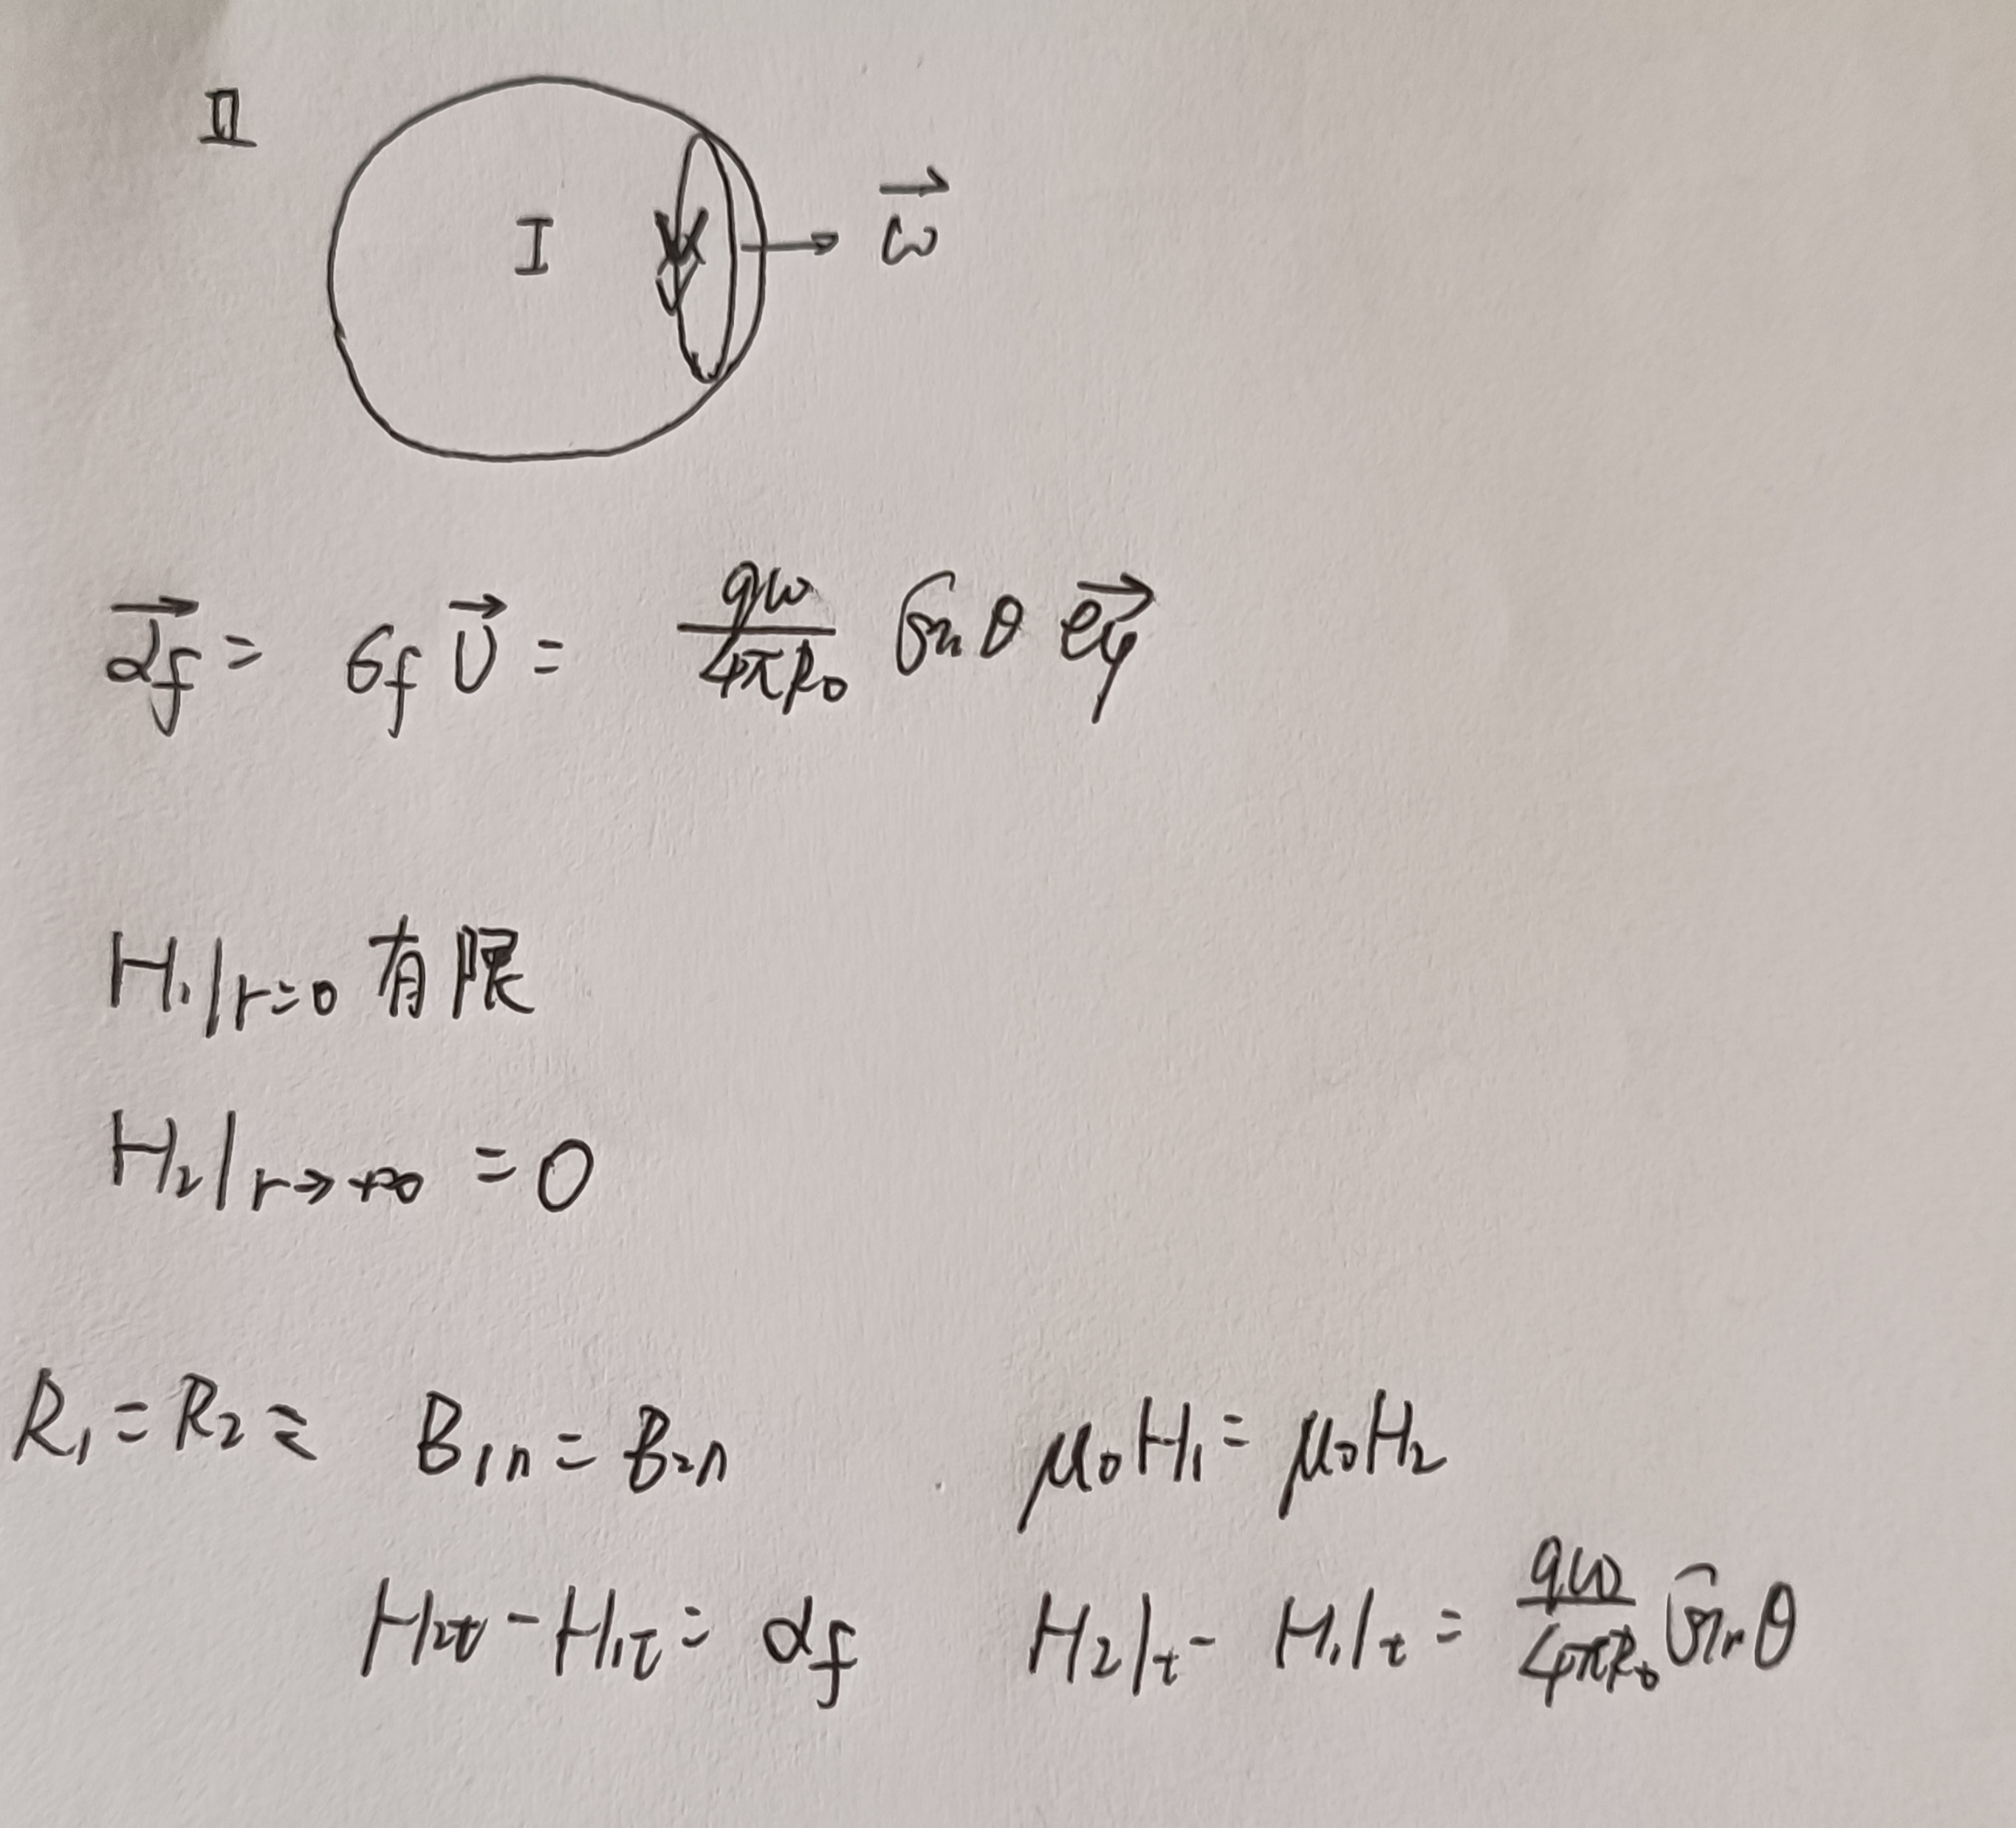 II
I
ω⃗
α⃗f = σf v⃗ = qω/4πR₀ sinθ e⃗φ
H₁|r=0 有限
H₂|r→+∞ = 0
R₁=R₂ = B₁n = B₂n μ₀H₁ = μ₀H₂
H₂t - H₁t = αf H₂|t - H₁|t = qω/4πR₀ sinθ